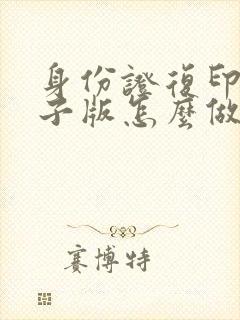 身份證復印
子版怎麼做
賽博特